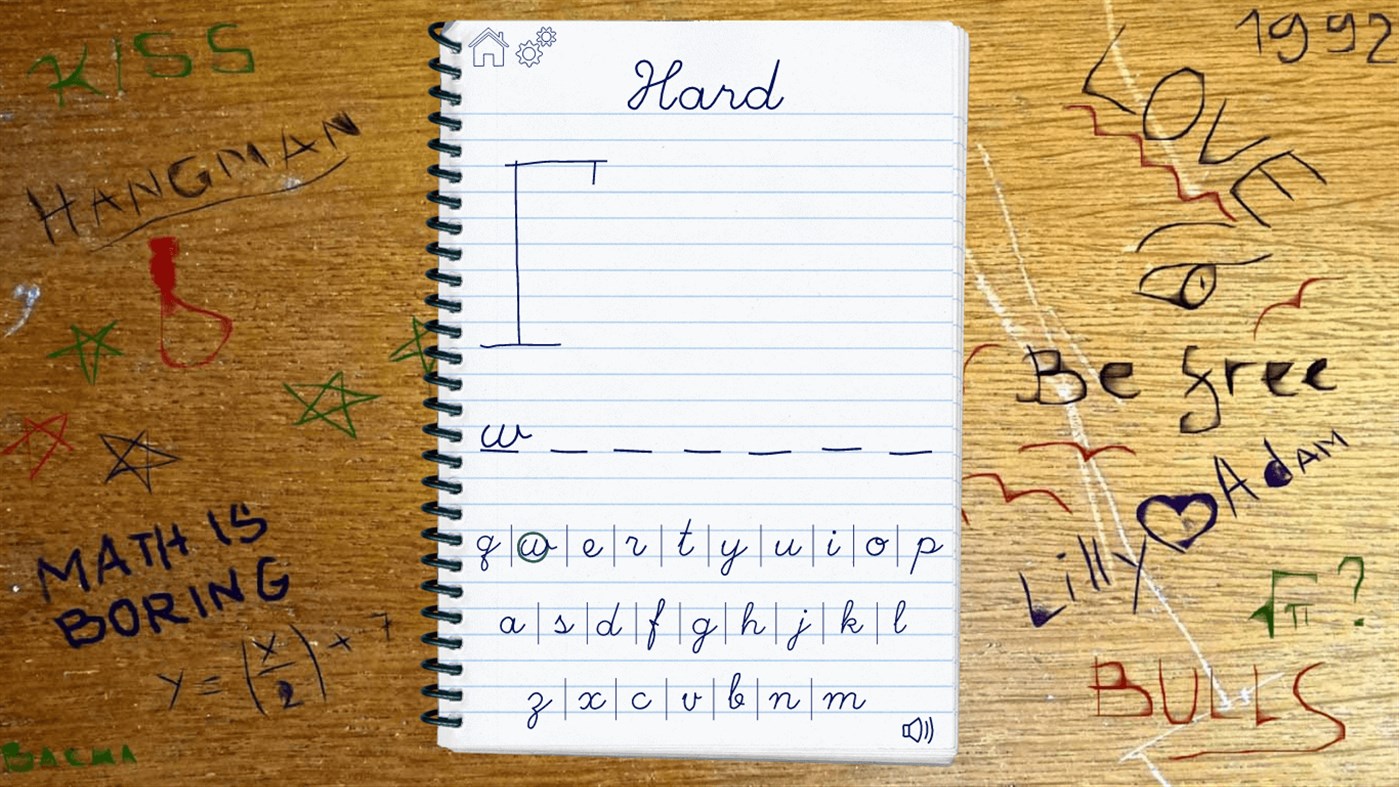 KISS
HANGMAN
MATH IS
BORING
y = (x/2) + 7
BACMA
Hard
w _ _ _ _ _ _
q|w|e|r|t|y|u|i|o|p
a|s|d|f|g|h|j|k|l
z|x|c|v|b|n|m
1992
LOVE
Be free
Lilly ♥ Adam
√π ?
BULLS